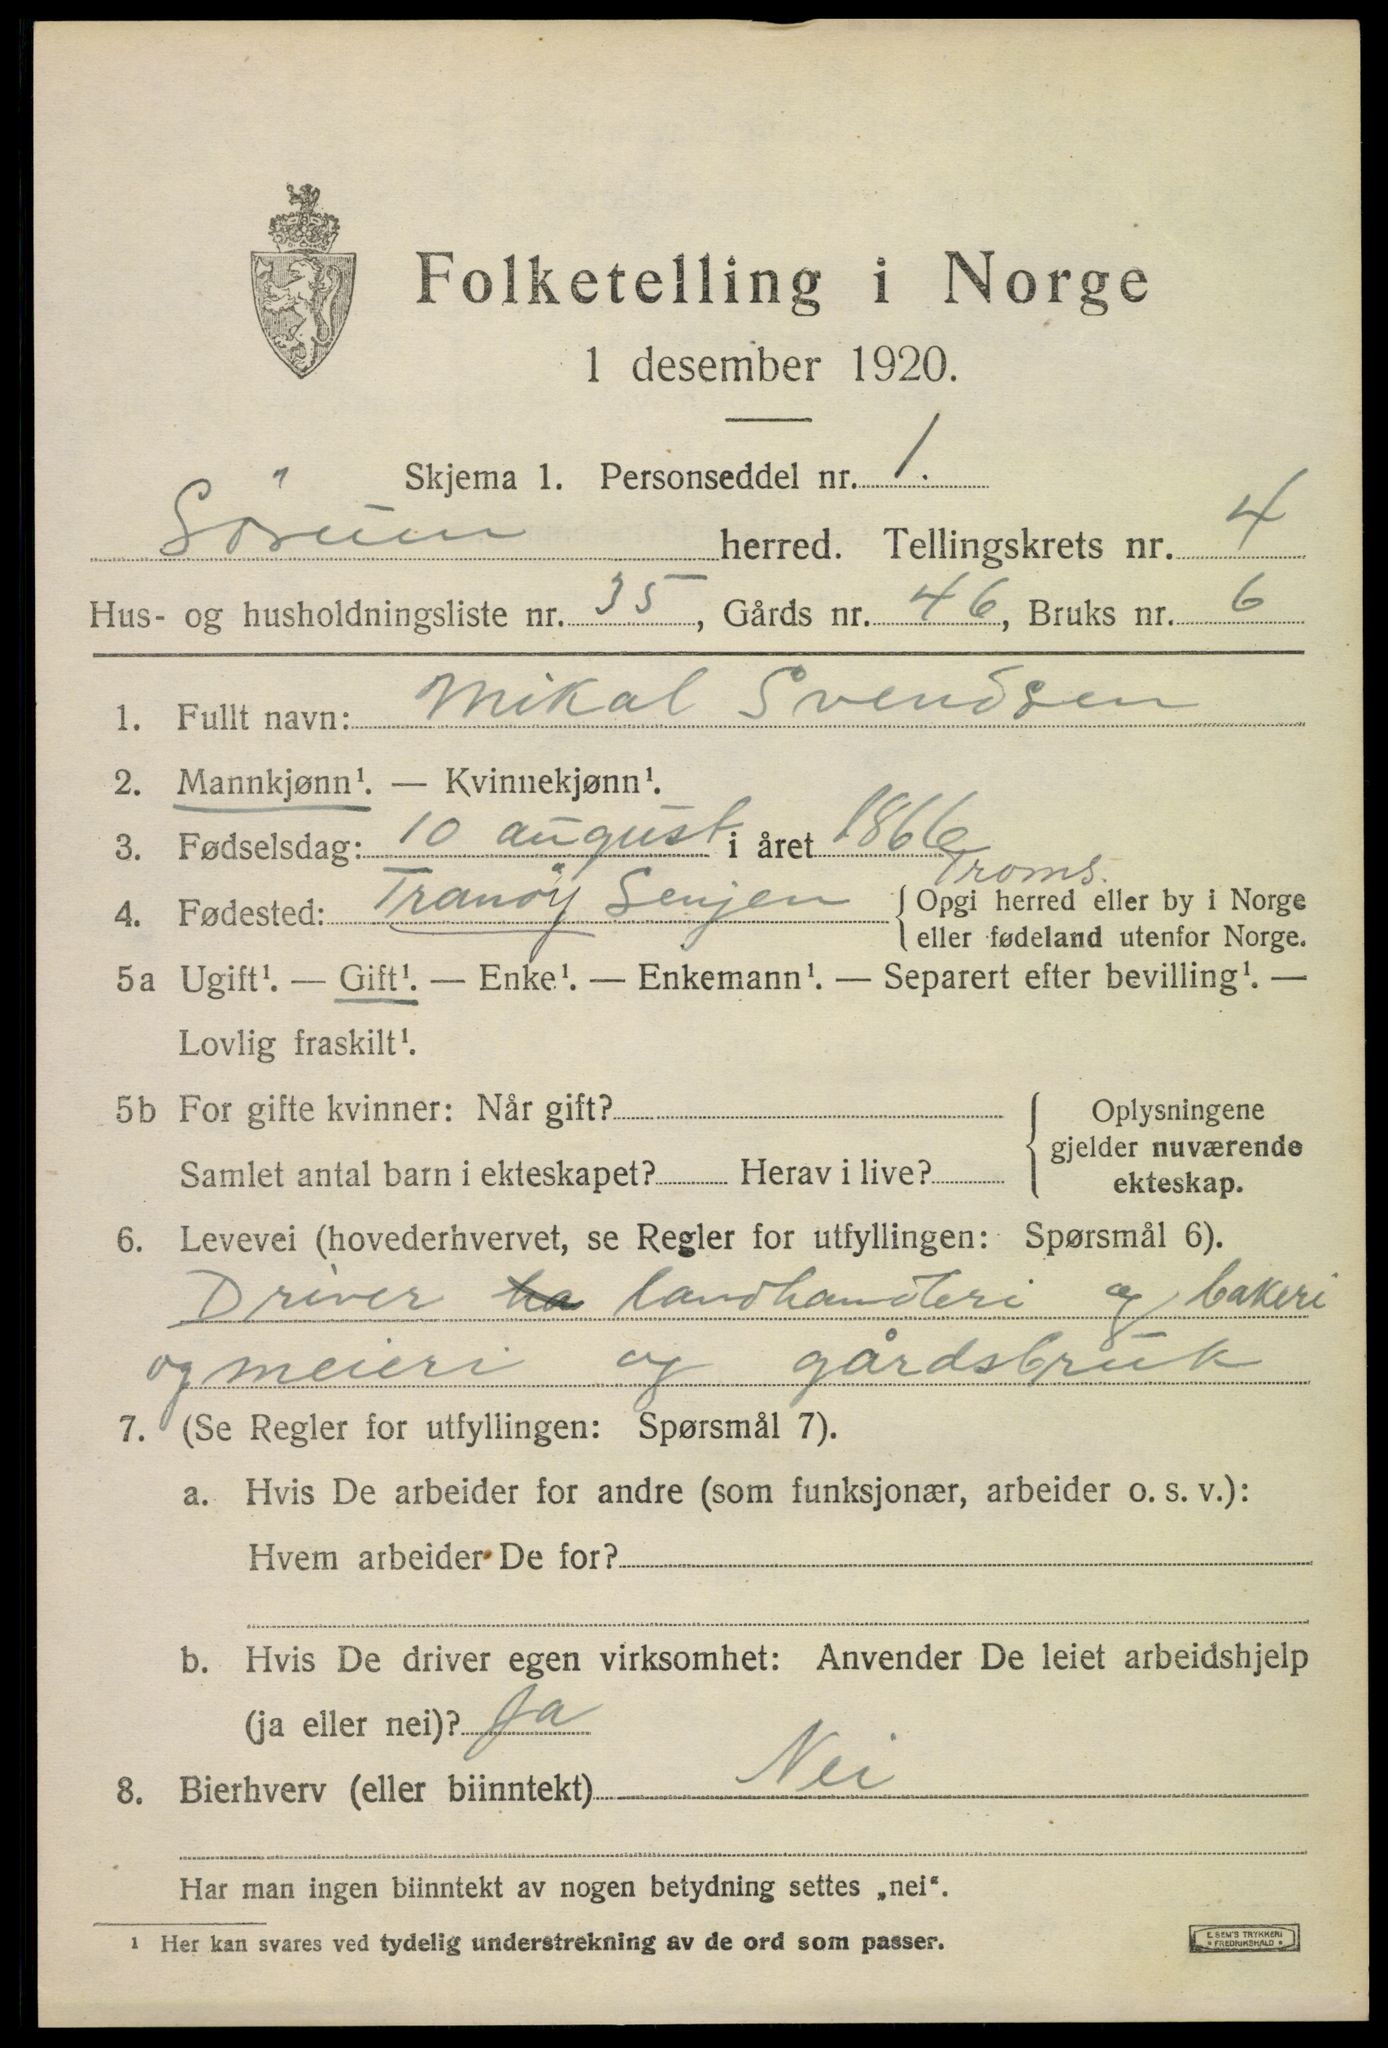 Folketelling i Norge
1 desember 1920.
Skjema 1. Personseddel nr. 1.
Sörum herred. Tellingskrets nr. 4
Hus- og husholdningsliste nr. 35, Gårds nr. 46, Bruks nr. 6
1. Fullt navn: Mikal Svendsen
2. Mannkjønn¹. — Kvinnekjønn¹.
3. Fødselsdag: 10 august i året 1866
Troms.
4. Fødested: Tranöy Senjen { Opgi herred eller by i Norge
eller fødeland utenfor Norge.
5a Ugift¹. — Gift¹. — Enke¹. — Enkemann¹. — Separert efter bevilling¹. —
Lovlig fraskilt¹.
5b For gifte kvinner: Når gift?
Samlet antal barn i ekteskapet? Herav i live?
Oplysningene
gjelder nuværende
ekteskap.
6. Levevei (hovederhvervet, se Regler for utfyllingen: Spørsmål 6).
Driver ha landhandleri og bakeri
og meieri og gårdsbruk
7. (Se Regler for utfyllingen: Spørsmål 7).
a. Hvis De arbeider for andre (som funksjonær, arbeider o. s. v.):
Hvem arbeider De for?
b. Hvis De driver egen virksomhet: Anvender De leiet arbeidshjelp
(ja eller nei)? Ja
8. Bierhverv (eller biinntekt) Nei
Har man ingen biinntekt av nogen betydning settes „nei“.
¹ Her kan svares ved tydelig understrekning av de ord som passer.
E. SEM'S TRYKKERI
* FREDRIKSHALD *